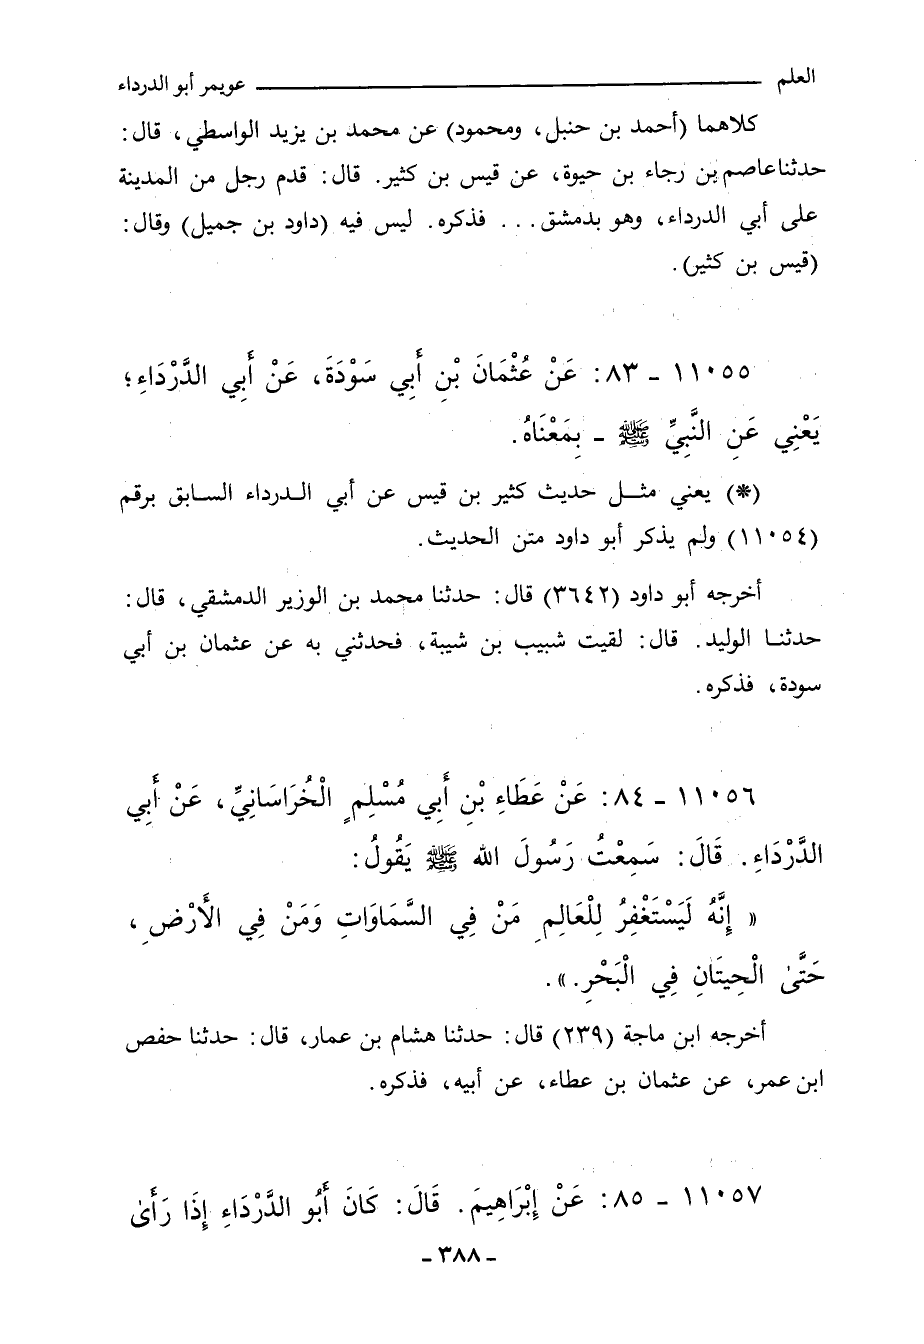 العلم ـــــــ عويمر أبو الدرداء
كلاهما (أحمد بن حنبل، ومحمود) عن محمد بن يزيد الواسطي، قال:
حدثنا عاصم بن رجاء بن حيوة، عن قيس بن كثير. قال: قدم رجل من المدينة
على أبي الدرداء، وهو بدمشق... فذكره. ليس فيه (داود بن جميل) وقال:
(قيس بن كثير).
١١٠٥٥ - ٨٣: عَنْ عُثْمَانَ بْنِ أَبِي سَوْدَةَ، عَنْ أَبِي الدَّرْدَاءِ؛
يَعْنِي عَنِ النَّبِيِّ ﷺ - بِمَعْنَاهُ.
(*) يعني مثل حديث كثير بن قيس عن أبي الدرداء السابق برقم
(١١٠٥٤) ولم يذكر أبو داود متن الحديث.
أخرجه أبو داود (٣٦٤٢) قال: حدثنا محمد بن الوزير الدمشقي، قال:
حدثنا الوليد. قال: لقيت شبيب بن شيبة، فحدثني به عن عثمان بن أبي
سودة، فذكره.
١١٠٥٦ - ٨٤: عَنْ عَطَاءِ بْنِ أَبِي مُسْلِمٍ الْخُرَاسَانِيِّ، عَنْ أَبِي
الدَّرْدَاءِ. قَالَ: سَمِعْتُ رَسُولَ الله ﷺ يَقُولُ:
« إِنَّهُ لَيَسْتَغْفِرُ لِلْعَالِمِ مَنْ فِي السَّمَاوَاتِ وَمَنْ فِي الأَرْضِ،
حَتَّىٰ الْحِيتَانِ فِي الْبَحْرِ.».
أخرجه ابن ماجة (٢٣٩) قال: حدثنا هشام بن عمار، قال: حدثنا حفص
ابن عمر، عن عثمان بن عطاء، عن أبيه، فذكره.
١١٠٥٧ - ٨٥: عَنْ إِبْرَاهِيمَ. قَالَ: كَانَ أَبُو الدَّرْدَاءِ إِذَا رَأَىٰ
- ٣٨٨ -